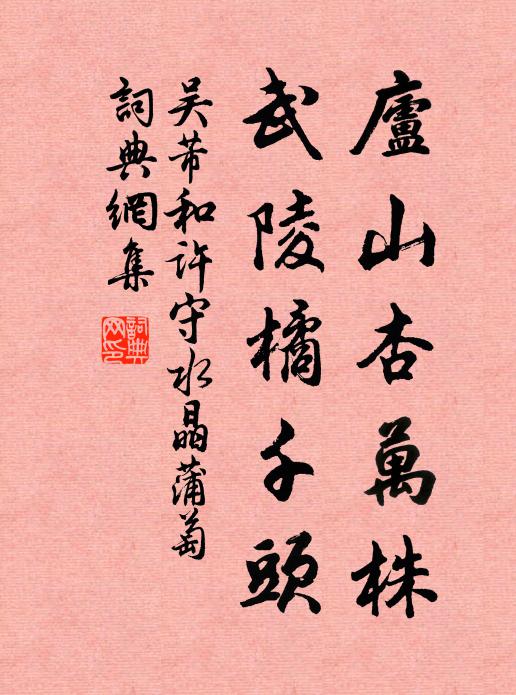 廬山杏萬株
武陵橘千頭
吴芾和許守水晶蒲萄
詞典網集
詞典網印